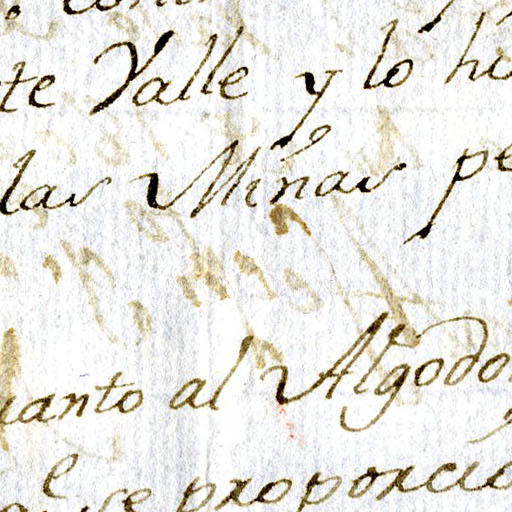 te Valle y lo hi
las Minas pe
uanto al Algodo
se proporcio